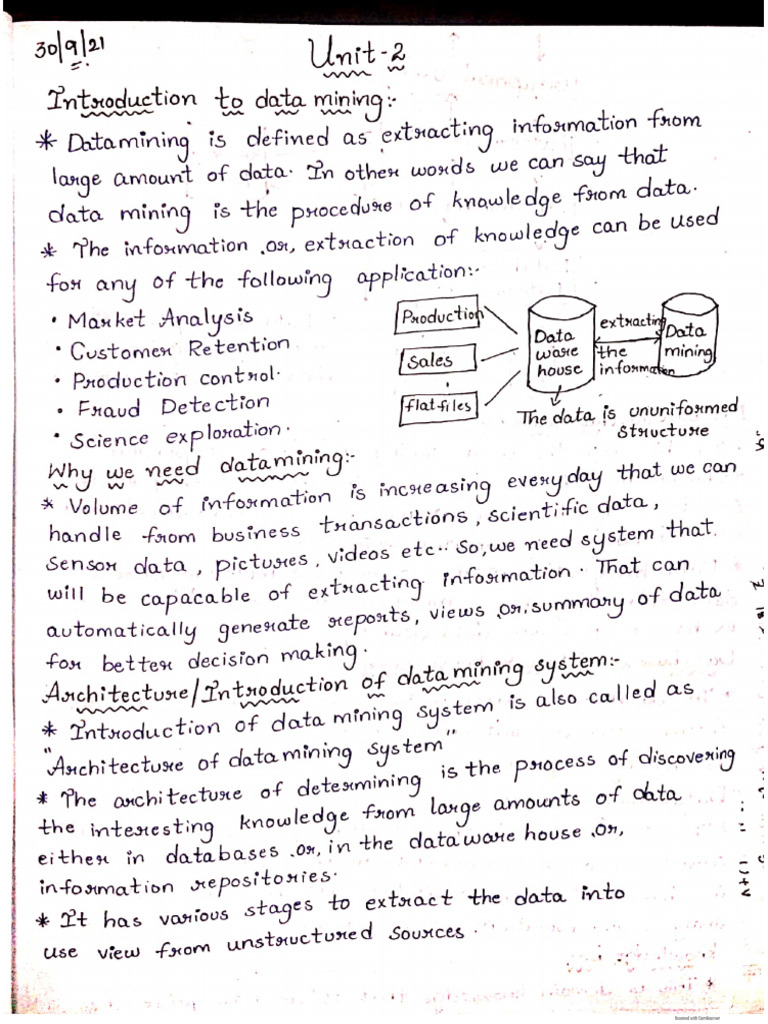 30/9/21
Unit-2
Introduction to data mining:-
* Datamining is defined as extracting information from
large amount of data. In other words we can say that
data mining is the procedure of knowledge from data.
* The information .or, extraction of knowledge can be used
for any of the following application:-
• Market Analysis
• Customer Retention
• Production control.
• Fraud Detection
• Science exploration.
Production
Sales
flat-files
Data
ware
house
extracting
the
information
Data
mining
The data is ununiformed
structure
Why we need datamining:-
* Volume of information is increasing everyday that we can
handle from business transactions, scientific data,
sensor data, pictures, videos etc.. So, we need system that
will be capacable of extracting information. That can
automatically generate reports, views .or. summary of data
for better decision making.
Architecture/Introduction of data mining system:-
* Introduction of data mining system is also called as
"Architecture of data mining system"
* The architecture of determining is the process of discovering
the interesting knowledge from large amounts of data
either in databases .or, in the dataware house .or,
information repositories.
* It has various stages to extract the data into
use view from unstructured sources.
Scanned with CamScanner